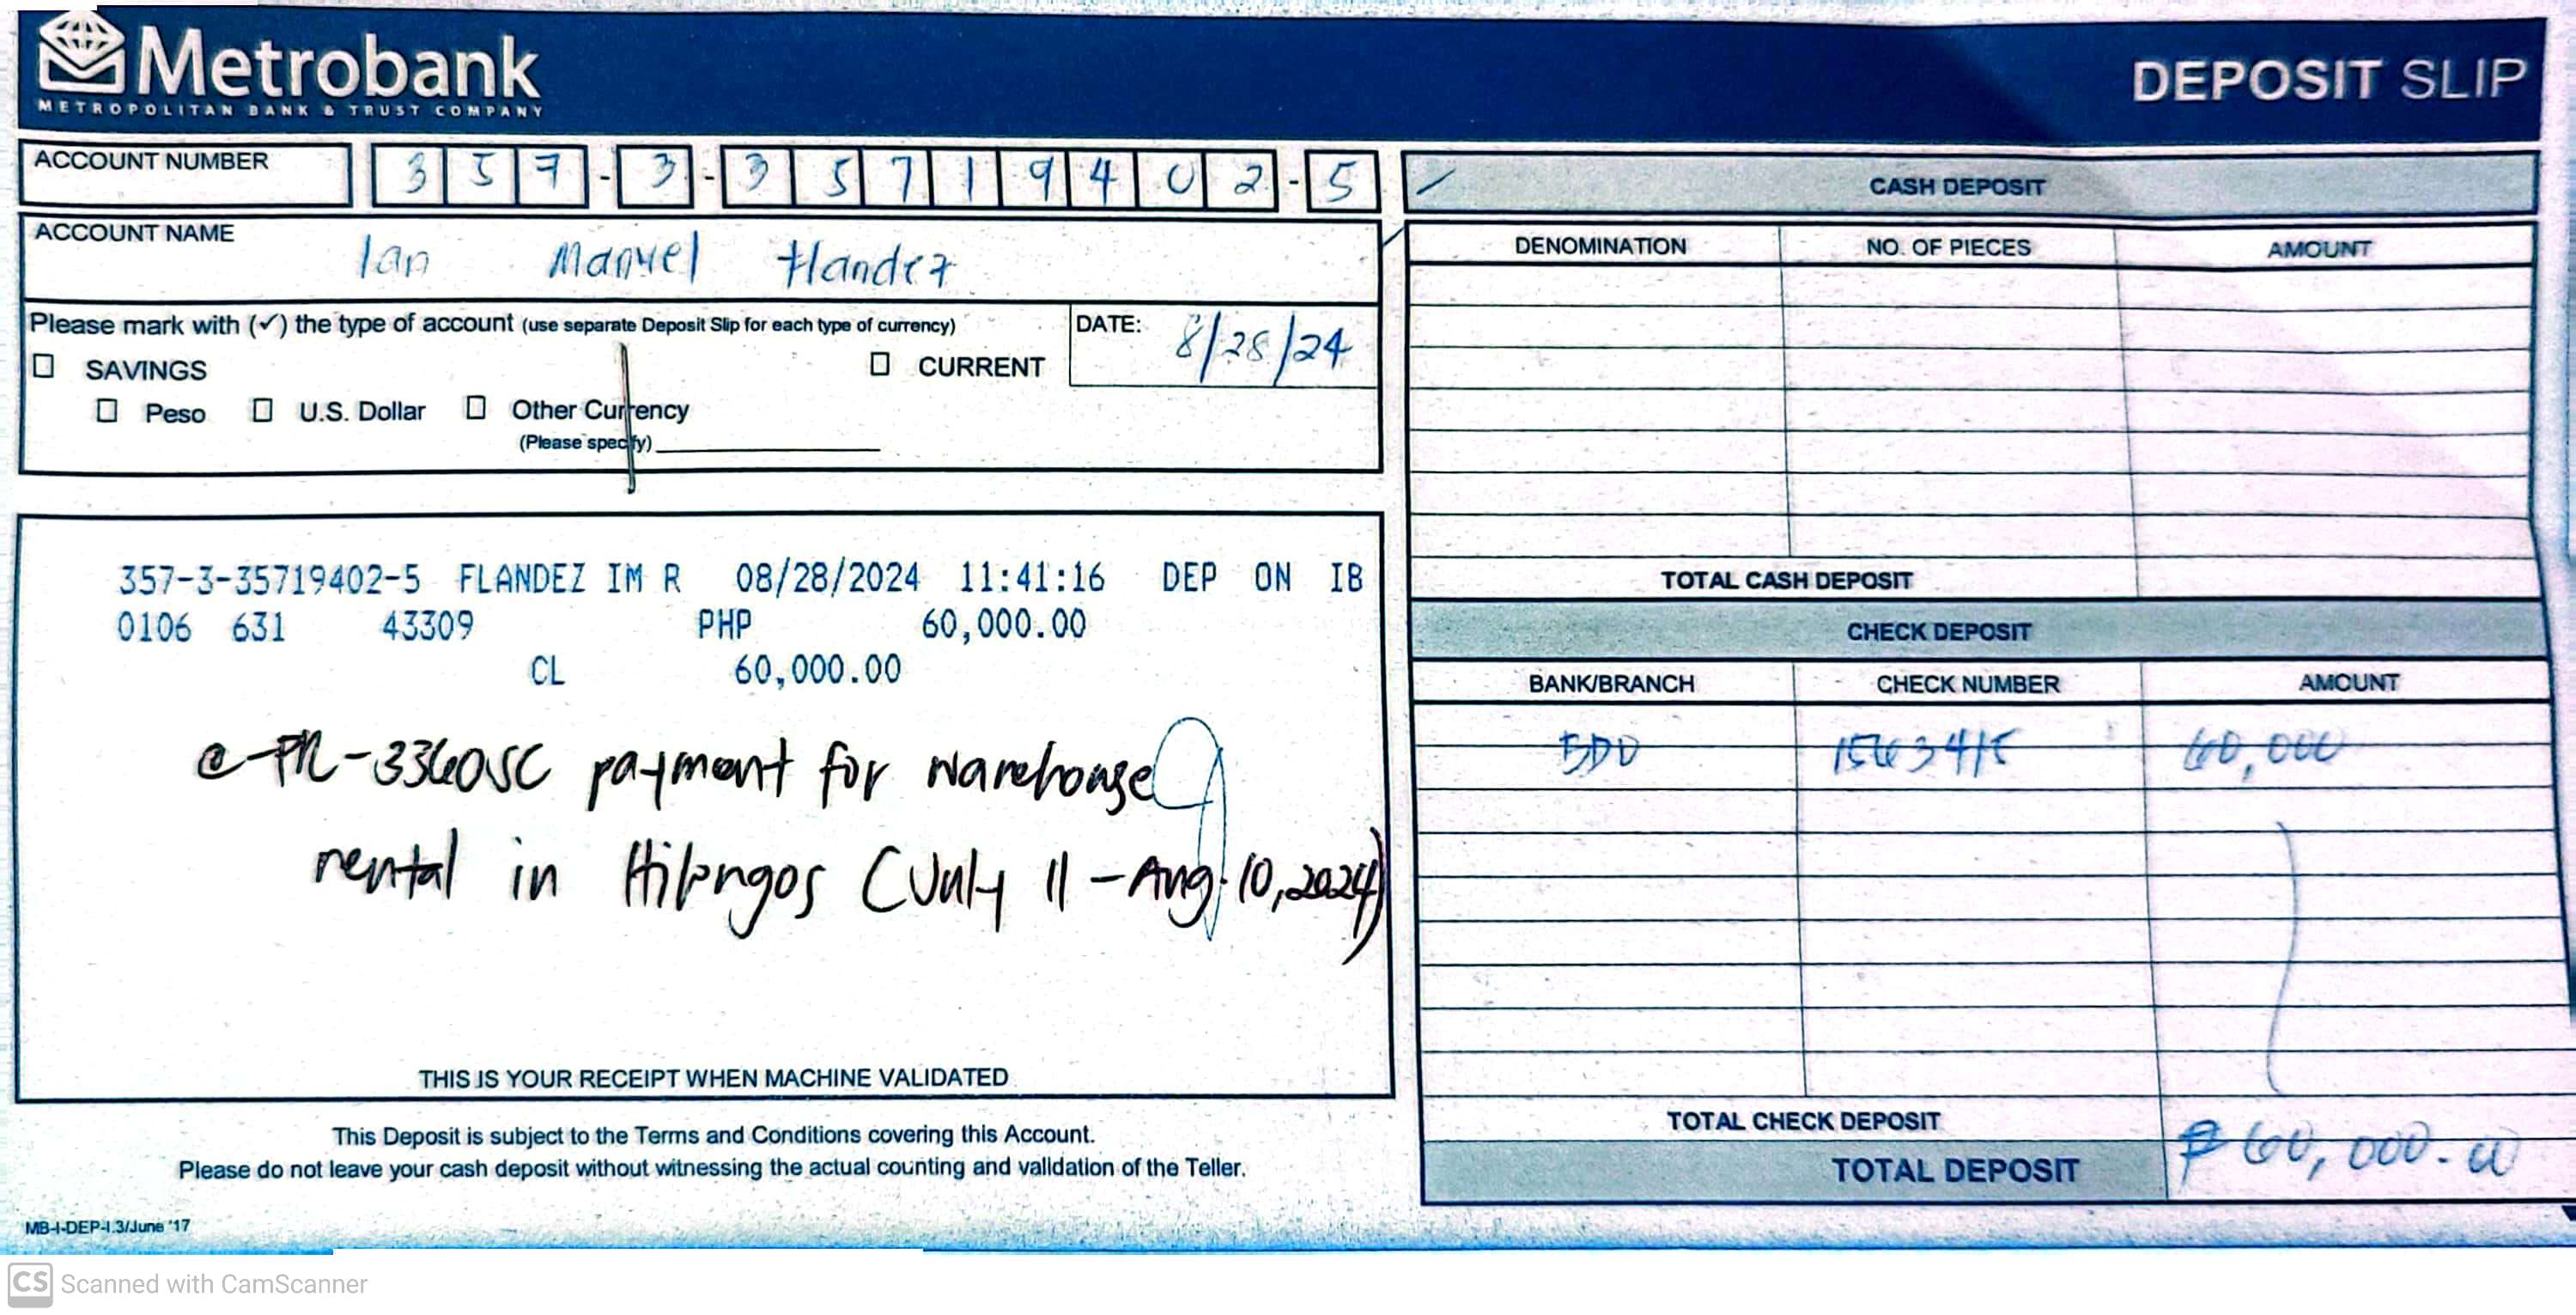 Metrobank
METROPOLITAN BANK & TRUST COMPANY
DEPOSIT SLIP
ACCOUNT NUMBER 3 5 7 - 3 - 3 5 7 1 9 4 0 2 - 5
ACCOUNT NAME Ian Manuel Flandez
Please mark with (✓) the type of account (use separate Deposit Slip for each type of currency)
DATE: 8/28/24
SAVINGS
CURRENT
Peso U.S. Dollar Other Currency
(Please specify)
357-3-35719402-5 FLANDEZ IM R 08/28/2024 11:41:16 DEP ON IB
0106 631 43309 PHP 60,000.00
CL 60,000.00
payment for warehouse
rental in Hilongos (July 11 - Aug. 10, 2024)
THIS IS YOUR RECEIPT WHEN MACHINE VALIDATED
This Deposit is subject to the Terms and Conditions covering this Account.
Please do not leave your cash deposit without witnessing the actual counting and validation of the Teller.
MB-I-DEP-I.3/June '17
CASH DEPOSIT
DENOMINATION NO. OF PIECES AMOUNT
TOTAL CASH DEPOSIT
CHECK DEPOSIT
BANK/BRANCH CHECK NUMBER AMOUNT
BDO 60,000
TOTAL CHECK DEPOSIT
TOTAL DEPOSIT ₱ 60,000.00
CS Scanned with CamScanner